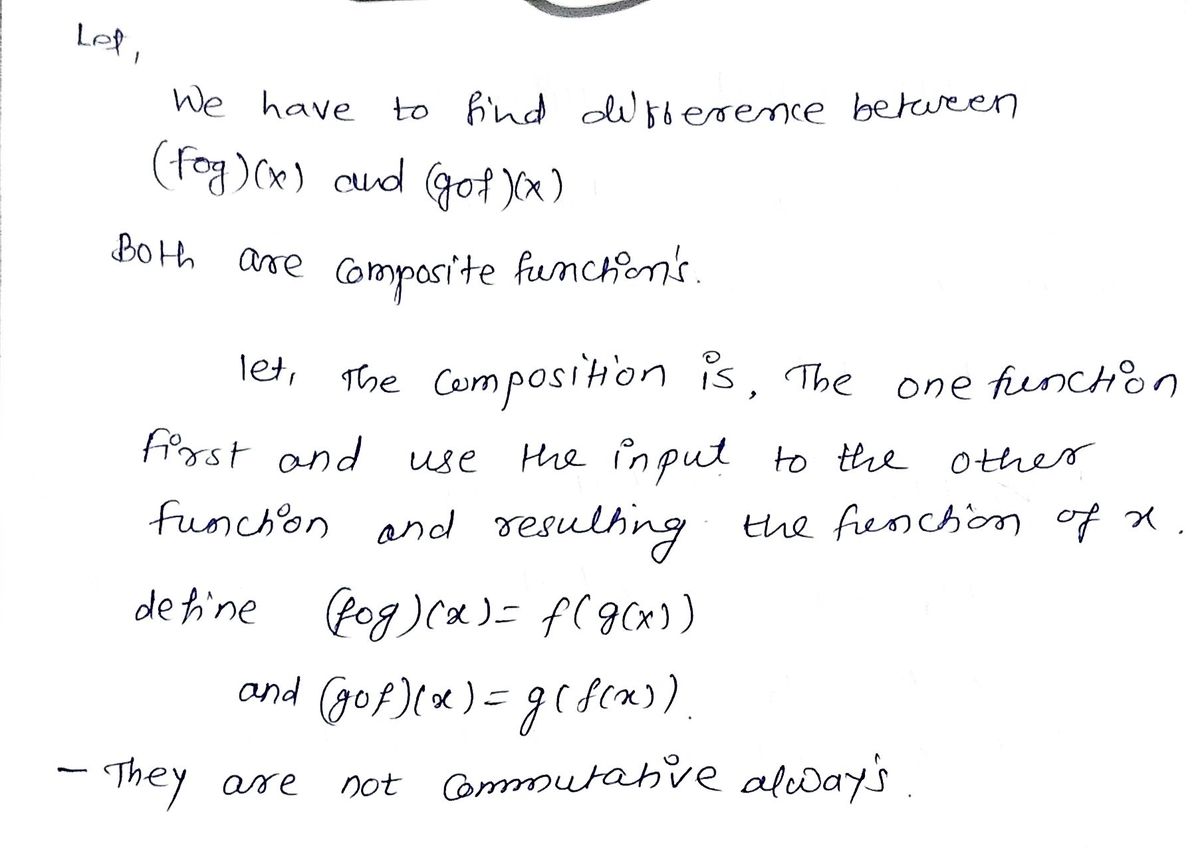 Let,
We have to find difference between
(fog)(x) and (gof)(x)
Both are composite function's.
let, The composition is, The one function
first and use the input to the other
function and resulting the function of x.
define (fog)(x)= f(g(x))
and (gof)(x)= g(f(x)).
- They are not commutative always.